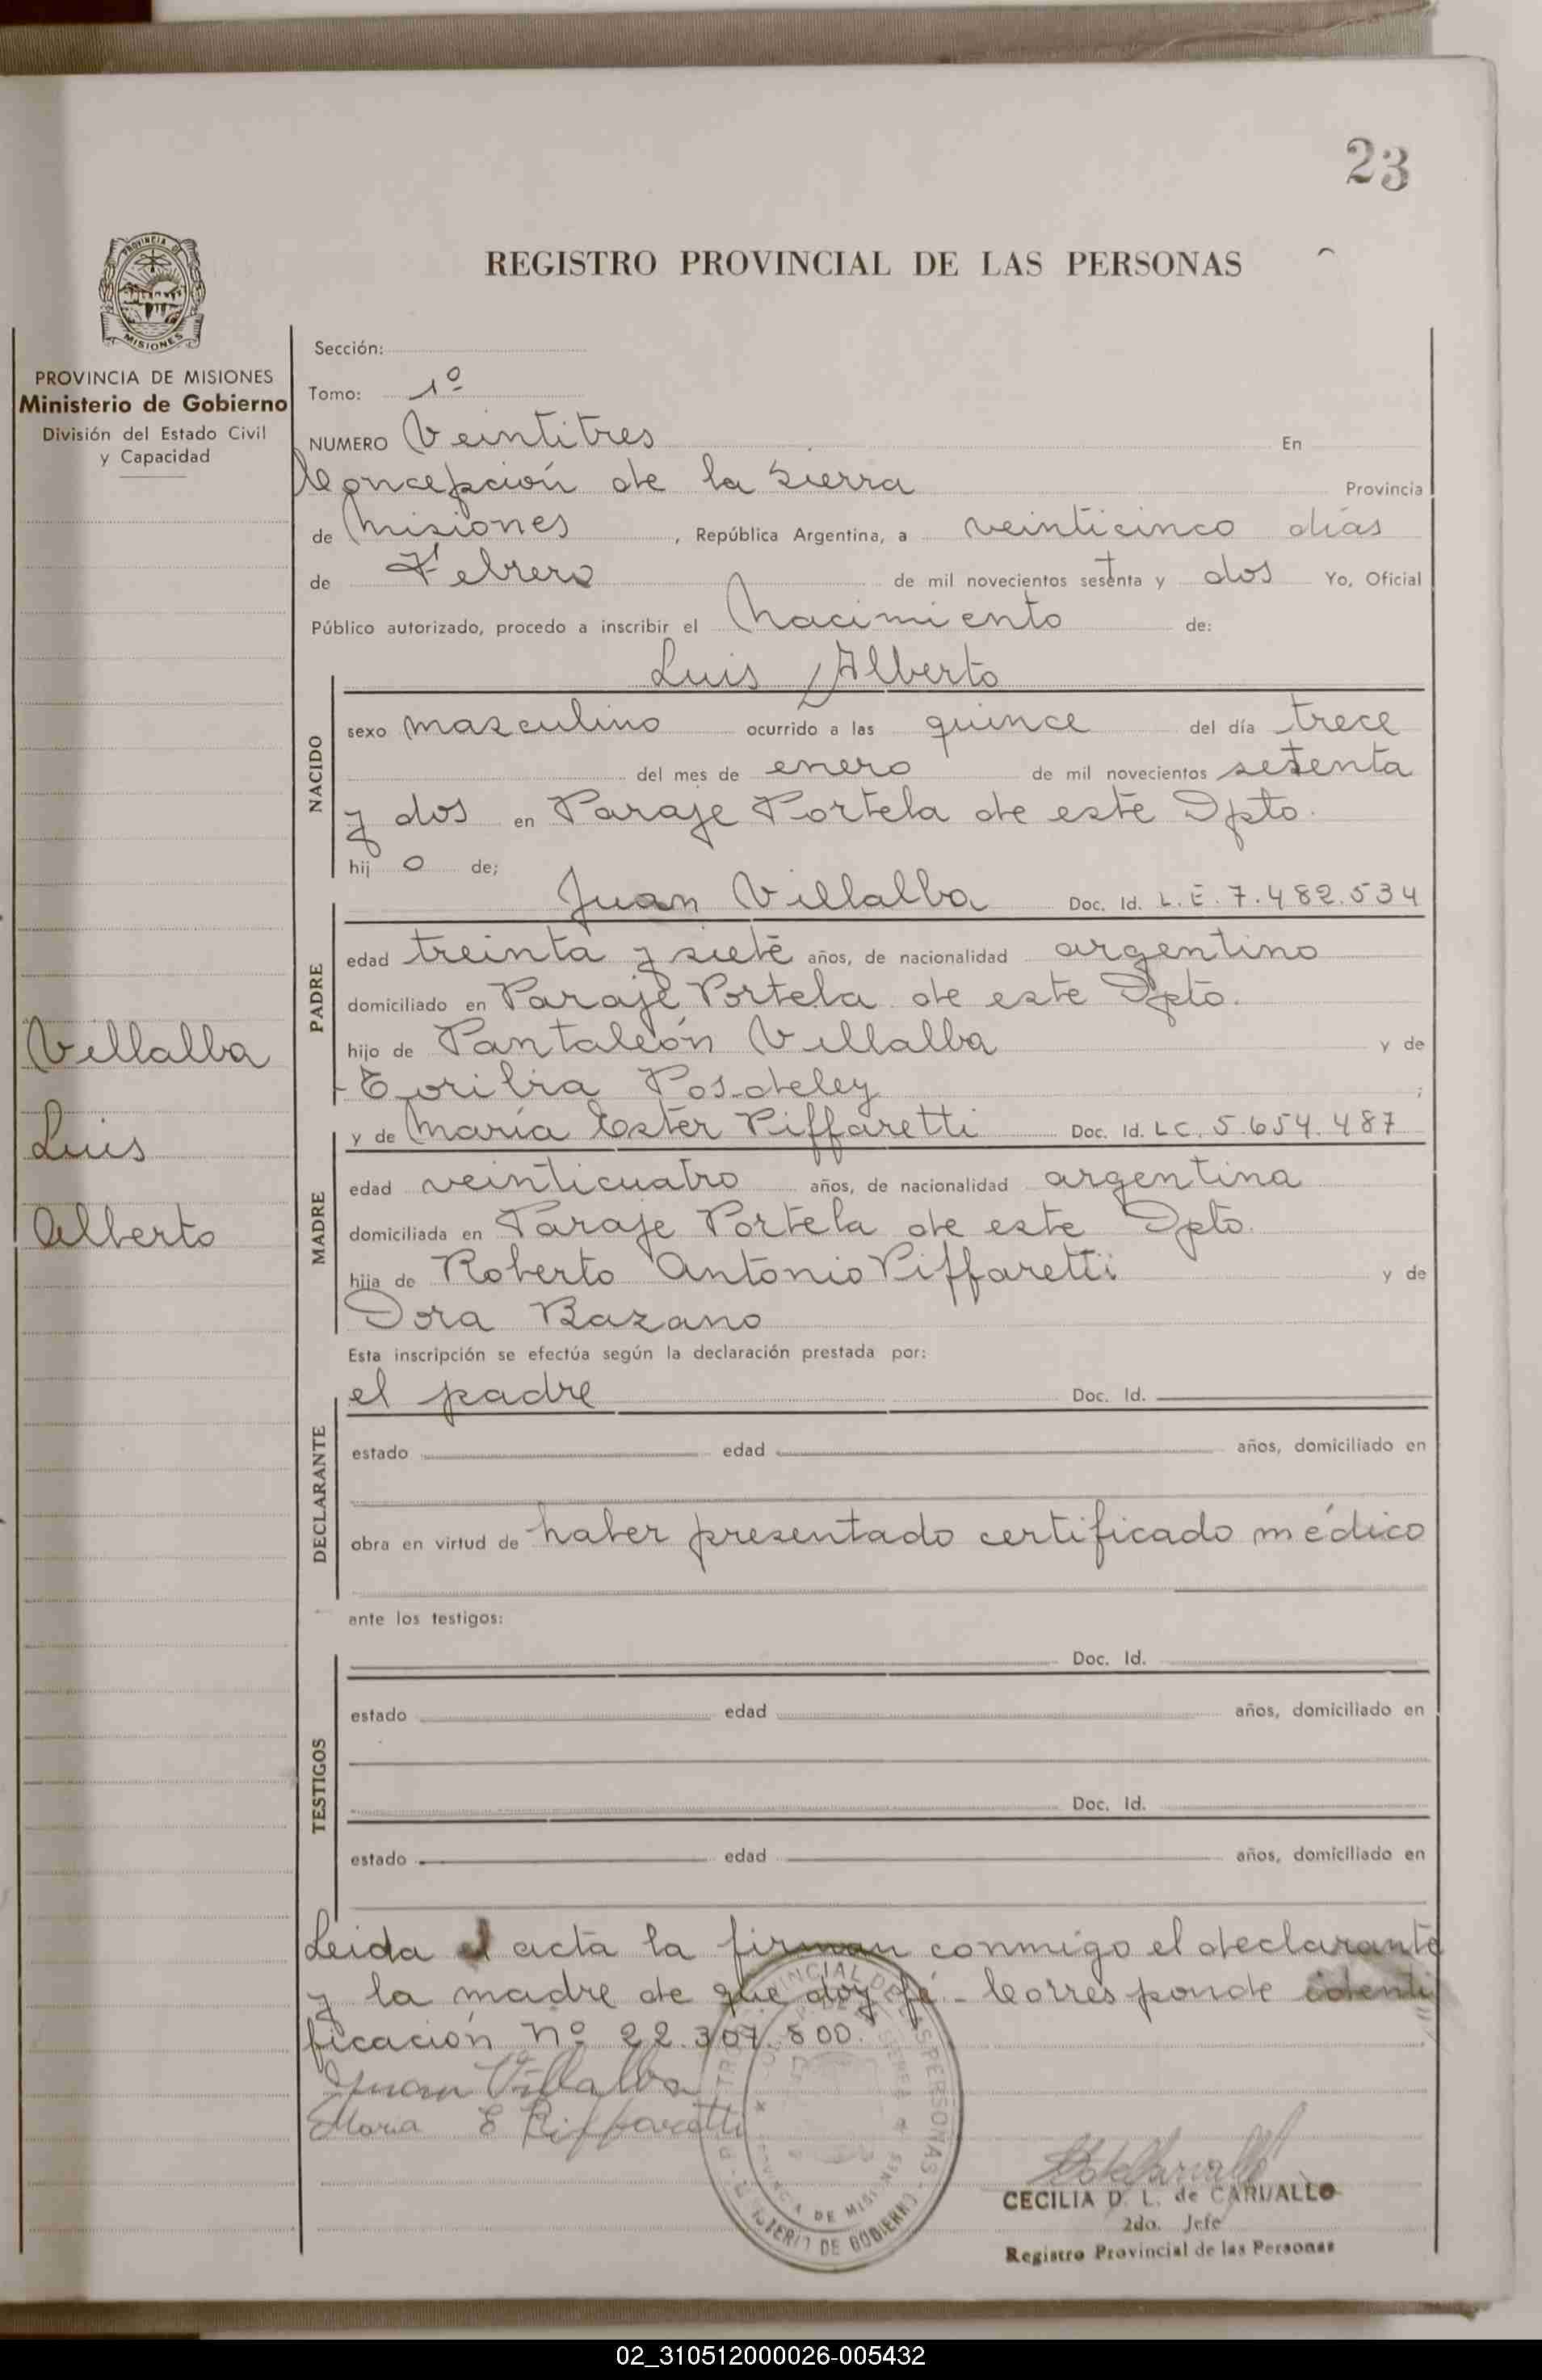 23
REGISTRO PROVINCIAL DE LAS PERSONAS
PROVINCIA DE
MISIONES
PROVINCIA DE MISIONES
Ministerio de Gobierno
División del Estado Civil
y Capacidad
Villalba
Luis
Alberto
Sección:
Tomo: 1º
NUMERO Veintitres En
Concepción de la Sierra Provincia
de Misiones, República Argentina, a veinticinco días
de Febrero de mil novecientos setenta y dos Yo, Oficial
Público autorizado, procedo a inscribir el Nacimiento de:
Luis Alberto
NACIDO
sexo masculino ocurrido a las quince del día trece
del mes de enero de mil novecientos setenta
y dos en Paraje Portela de este Dpto.
hij o de;
Juan Villalba Doc. Id. L.E. 7.482.534
PADRE
edad treinta y siete años, de nacionalidad argentino
domiciliado en Paraje Portela de este Dpto.
hijo de Pantaleón Villalba y de
Toribia Posdeley ;
y de María Ester Piffaretti Doc. Id. LC. 5.654.487
MADRE
edad veinticuatro años, de nacionalidad argentina
domiciliada en Paraje Portela de este Dpto.
hija de Roberto Antonio Piffaretti y de
Dora Bazano
Esta inscripción se efectúa según la declaración prestada por:
el padre Doc. Id.
DECLARANTE
estado edad años, domiciliado en
obra en virtud de haber presentado certificado médico
ante los testigos:
Doc. Id.
TESTIGOS
estado edad años, domiciliado en
Doc. Id.
estado edad años, domiciliado en
Leida el acta la firman conmigo el declarante
y la madre de que doy fé.- Corresponde identi
ficación Nº 22.307.800.
Juan Villalba
Maria E Piffaretti
CECILIA D. L. de CARVALLO
2do. Jefe
Registro Provincial de las Personas
02_310512000026-005432